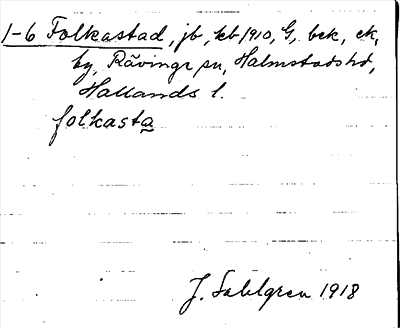 1-6 Folkastad, jb, kb 1910, G, bek, ek,
by, Rävinge sn, Halmstads hd,
Hallands l.
folkasta
J. Sahlgren 1918